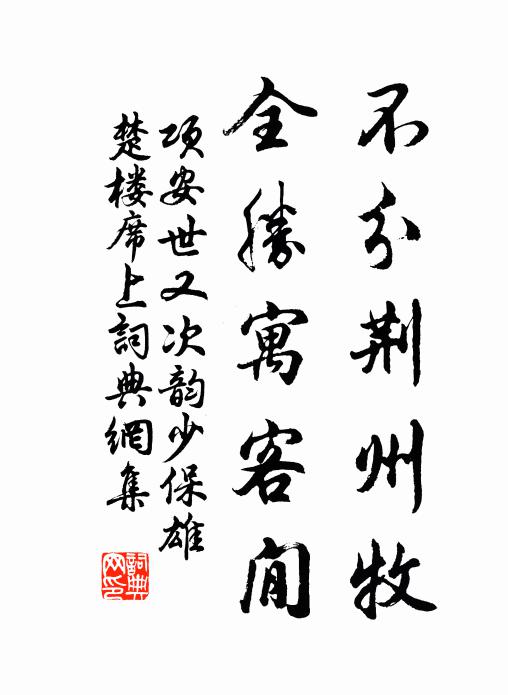 不分荆州牧
全勝寓客間
項安世又次韵少保雄
楚楼席上詞典網集
詞典
网印